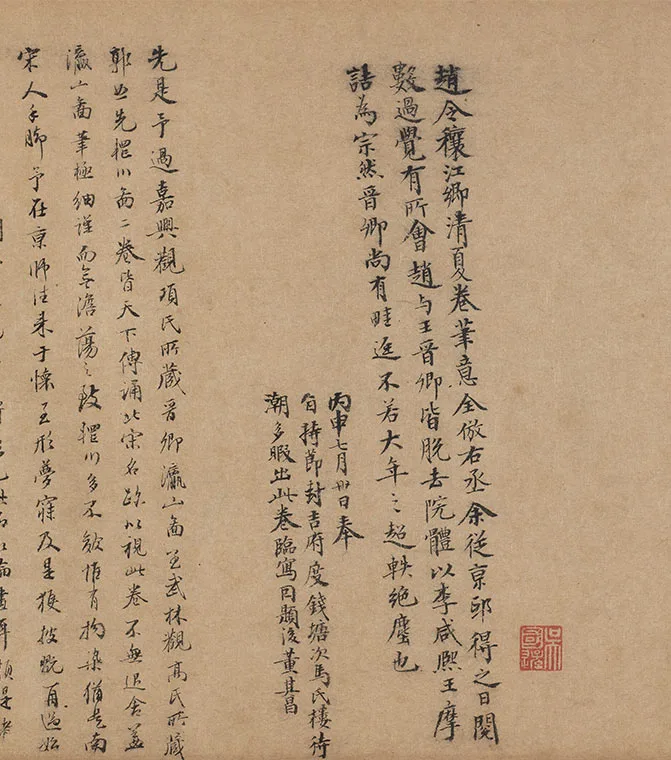 趙令穰江鄉清夏卷筆意全倣右丞余從京邸得之日閱
數過覺有所會趙與王晉卿皆脫去院體以李咸熙王摩
詰為宗然晉卿尚有畦逕不若大年之超軼絕塵也
丙申七月卅日奉
旨持節封吉府度錢塘次馬氏樓待
潮多暇出此卷臨寫因題後董其昌
先是予過嘉興觀項氏所藏晉卿瀛山啚至武林觀高氏所藏
郭恕先輞川啚二卷皆天下傳誦北宋名跡以視此卷不無退舍蓋
瀛山啚筆極細謹而乏澹蕩之致輞川多不皴惟有拘染猶是南
宋人手脚予在京師往來于懷至形夢寐及是獲披翫再過始